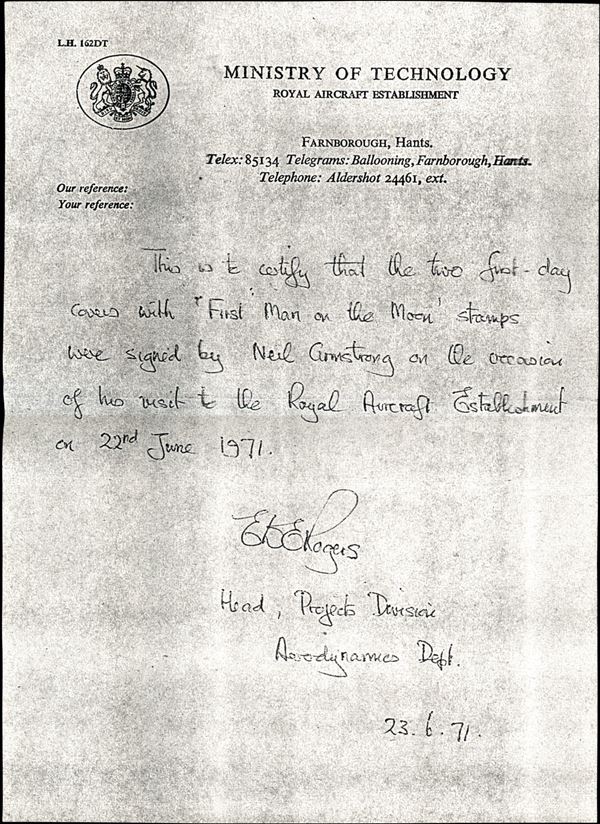 L.H. 162DT
MINISTRY OF TECHNOLOGY
ROYAL AIRCRAFT ESTABLISHMENT
FARNBOROUGH, Hants.
Telex: 85134 Telegrams: Ballooning, Farnborough, Hants.
Telephone: Aldershot 24461, ext.
Our reference:
Your reference:
This is to certify that the two first-day
covers with 'First Man on the Moon' stamps
were signed by Neil Armstrong on the occasion
of his visit to the Royal Aircraft Establishment
on 22nd June 1971.
E W E Rogers
Head, Projects Division
Aerodynamics Dept.
23.6.71.